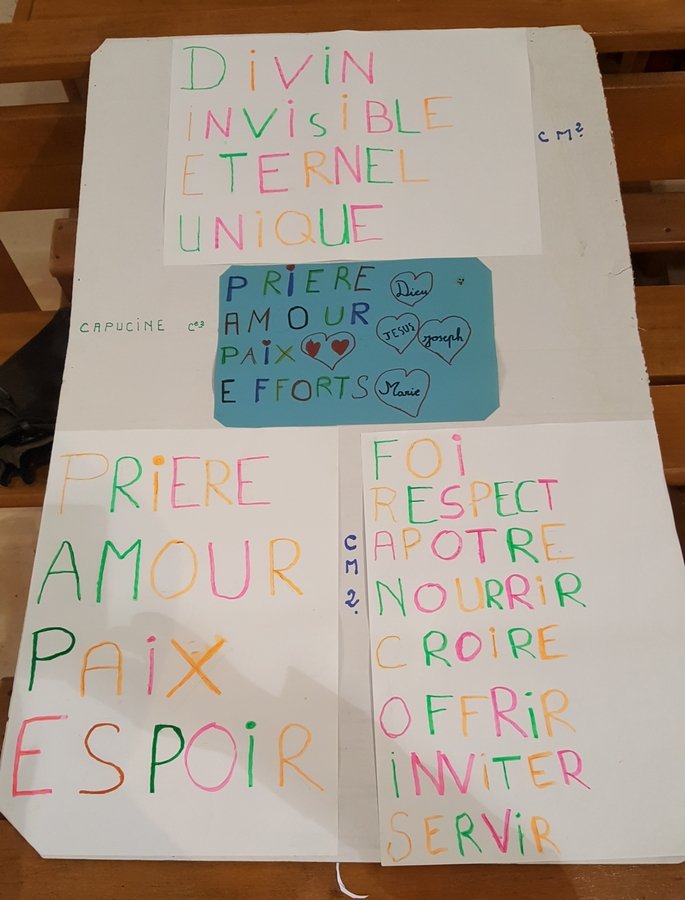 DiViN
iNViSiBLE
ETERNEL
UNiQUE
CM2
PRiERE
Dieu
AMOUR
JESUS
Joseph
PAiX
EFFORTS
Marie
CAPUCINE Ce3
PRiERE
AMOUR
PAiX
ESPOiR
CM2.
FOi
RESPECT
APOTRE
NOURRiR
CROiRE
OFFRiR
iNViTER
SERViR